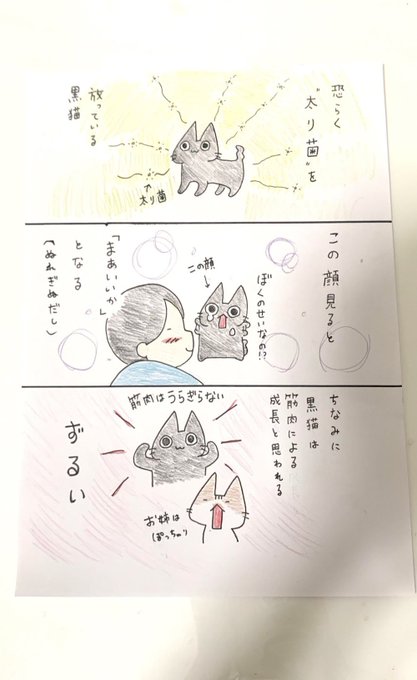 恐らく
"太り菌"を
放っている
黒猫
太り菌
この顔見ると
ぼくのせいなの!?
この顔
「まあいいか」
となる
(ぬれぎぬだし)
ちなみに
黒猫は
筋肉による
成長と思われる
筋肉はうらぎらない
お姉は
(ぽっちゃり)
ずるい